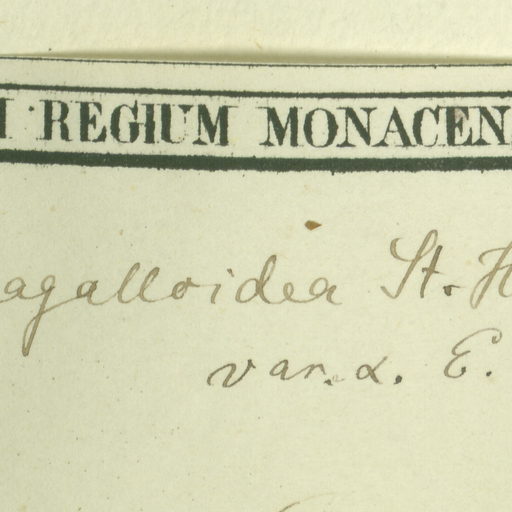 REGIUM MONACEN
agalloidea St. H
var. α. E.